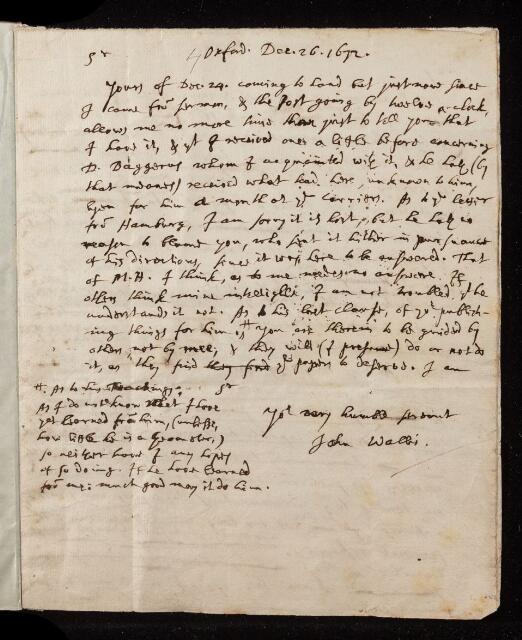 Sr Oxford. Dec. 26. 1672.
Yours of Dec. 24. coming to hand but just now since
I came frō sermon, & the Post going by twelve a-clock,
allows me no more time than just to tell you that
I have it, & yt I received one a little before concerning
D. Daggerus whom I acquainted with it, & he hath (by
that meanes) received what had been, unknown to him,
here for him a month at ye carriers. As to ye letter
frō Hamburg, I am sorry it is lost; but he hath no
reason to blame you, who sent it hither in pursuance
of his directions, since it was here to be answered. That
of M. H. I think, as to me needs no answere. If
others think mine intelligible, I am not troubled yt he
understands it not. As to his last clause, of ye publish-
ing things for him, # you are therein to be guided by
others, not by mee; & they will (I presume) do or not do
it, as they find they find ye papers to deserve. I am
#. As to his Teaching; Sr
As I do not know that I have
yet learned frō him, (unlesse,
how little he is a Geometer,)
so neither have I any hopes
of so doing. If he have learned
frō me; much good may it do him.
Yor very humble servant
John Wallis.